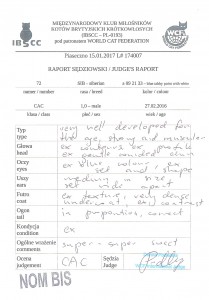 MIĘDZYNARODOWY KLUB MIŁOŚNIKÓW
KOTÓW BRYTYJSKICH KRÓTKOWŁOSYCH
(IBSCC - PL-0193)
pod patronatem WORLD CAT FEDERATION
IBSCC
WCF
Piaseczno 15.01.2017 L# 174007
RAPORT SĘDZIOWSKI / JUDGE'S RAPORT
72
SIB - siberian
n 09 21 33 - blue tabby point with white
numer / number
rasa / breed
kolor / colour
CAC
1,0 - male
27.02.2016
klasa / class
płeć / sex
wiek / age
Typ
type
very well developed for
that age, strong and muscular
Głowa
head
ex contours ex profile
ex gentle rounded chin
Oczy
eyes
ex blue colour ex
set and shape
Uszy
ears
medium in size
set wide apart
Futro
coat
ex texture, very dense
undercoat, ex contrast
Ogon
tail
in proportions, correct
Kondycja
condition
ex
Ogólne wrażenie
comments
super - super sweet
Ocena
judgement
CAC
Sędzia
Judge
NOM BIS